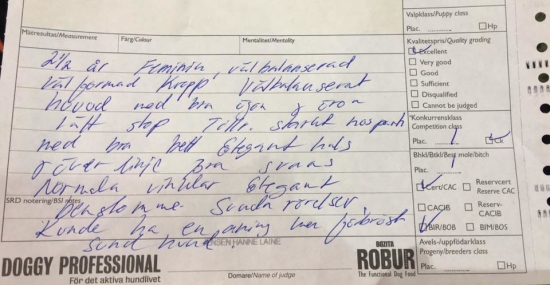 Valpklass/Puppy class
Plac. Hp
Mätresultat/Measurement Färg/Colour Mentalitet/Mentality
Kvalitetspris/Quality grading
Excellent
Very good
Good
Sufficient
Disqualified
Cannot be judged
2½ år Feminin, välbalanserad
välformad kropp Välbalanserat
huvud med bra ögon & öron
Lätt stop Tillr. starkt nosparti
med bra bett Elegant hals
& överlinje Bra svans
Normala vinklar Elegant
benstomme Sunda rörelser
Kunde ha en aning mer förbröst
Sund hund
*Konkurrensklass
Competition class
Plac. 1 Ck
Bhkl/Btkl/Best male/bitch
Plac. 1
Cert/CAC Reservcert
Reserve CAC
CACIB Reserv-
CACIB
BIR/BOB BIM/BOS
SRD notering/BSI notes
HANNE LAINE
DOGGY PROFESSIONAL
För det aktiva hundlivet
Domare/Name of judge
BOZITA
ROBUR
The Functional Dog Food
Avels-/uppfödarklass
Progeny/breeders class
Plac. Hp